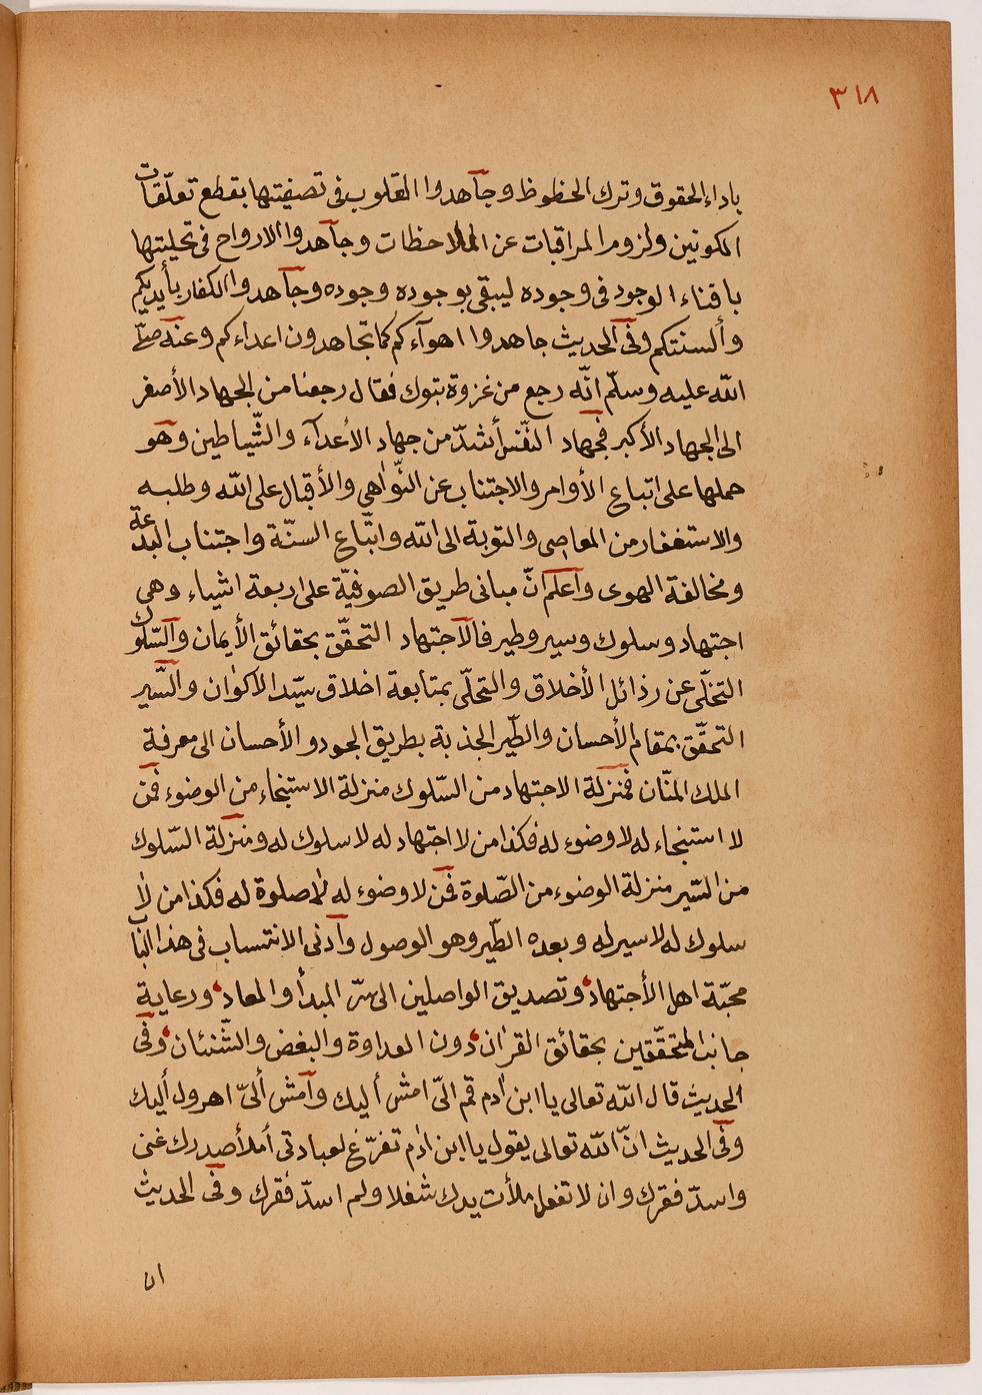 ٣١٨
باداء الحقوق وترك الحظوظ وجاهدوا القلوب فى تصفيتها بقطع تعلّقات
الكونين ولزوم المراقبات عن الملاحظات وجاهدوا الارواح فى تحليتها
بافناء الوجود فى وجوده ليبقى بوجوده وجوده وجاهدوا الكفار بأيديكم
وألسنتكم وفى الحديث جاهدوا اهوآءكم كما تجاهدون اعداءكم وعنه صلّى
الله عليه وسلّم انّه رجع من غزوة تبوك فقال رجعنا من الجهاد الأصغر
الى الجهاد الأكبر فجهاد النّفس أشدّ من جهاد الأعدآء والشّياطين وهو
حملها على اتباع الأوامر والاجتناب عن النّواهي والأقبال على الله وطلبه
والاستغفار من المعاصى والتوبة الى الله واتّباع السنّة واجتناب البدعة
ومخالفة الهوى واعلم انّ مبانى طريق الصوفيّة على اربعة اشياء وهى
اجتهاد وسلوك وسير وطير فالاجتهاد التحقّق بحقائق الأيمان والسّلوك
التخلّى عن رذائل الأخلاق والتحلّى بمتابعة اخلاق سيّد الاكوان والسّير
التحقّق بمقام الأحسان والطّير الجذبة بطريق الجود والأحسان الى معرفة
الملك المنّان فمنزلة الاجتهاد من السّلوك منزلة الاستنجاء من الوضوء فمن
لا استنجاء له لا وضوء له فكذا من لا اجتهاد له لا سلوك له ومنزلة السّلوك
من السّير منزلة الوضوء من الصّلوة فمن لا وضوء له لا صلوة له فكذا من لا
سلوك له لا سير له وبعده الطّير وهو الوصول وأدنى الانتساب فى هذا الباب
محبّة اهل الأجتهاد، وتصديق الواصلين الى سرّ المبدأ والمعاد، ورعاية
جانب المتحقّقين بحقائق القرآن، دون العداوة والبغض والشّنئان، وفى
الحديث قال الله تعالى يا ابن ادم قم الىّ امش أليك وامش ألىّ اهرول أليك
وفى الحديث انّ الله تعالى يقول يا ابن ادم تفرّغ لعبادتى أملأ صدرك غنى
واسدّ فقرك وان لا تفعل ملأت يدك شغلا ولم اسدّ فقرك وفى الحديث
ان